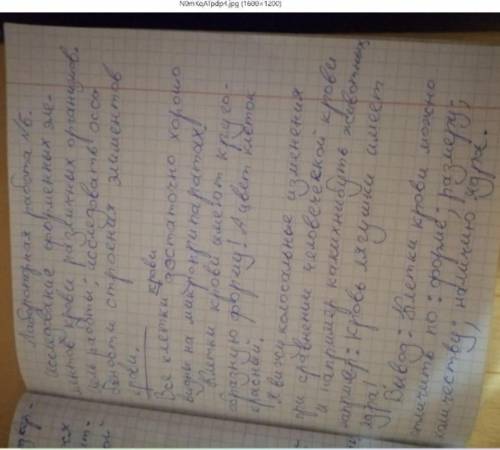 N9mKqATpdp4.jpg (1600×1200)
Лаборторная работа №6.
исследование форменных эле-
ментов крови различных организмов.
Цель работы: исследовать осо-
бености строения элиментов
крови.
крови
Все клетки достаточно хорошо
видны на микропрпаратах!
Клетки крови имеют круго-
образную форму! А цвет клеток
красный.
Я вижу колосальные изменения
при сравнении человеческой крови
и например какихнибуть животных
например: кровь лягушки имеет
ядра!
Вывод: Клетки крови можно
отличить по: форме, размеру,
количеству, наличию ядра.